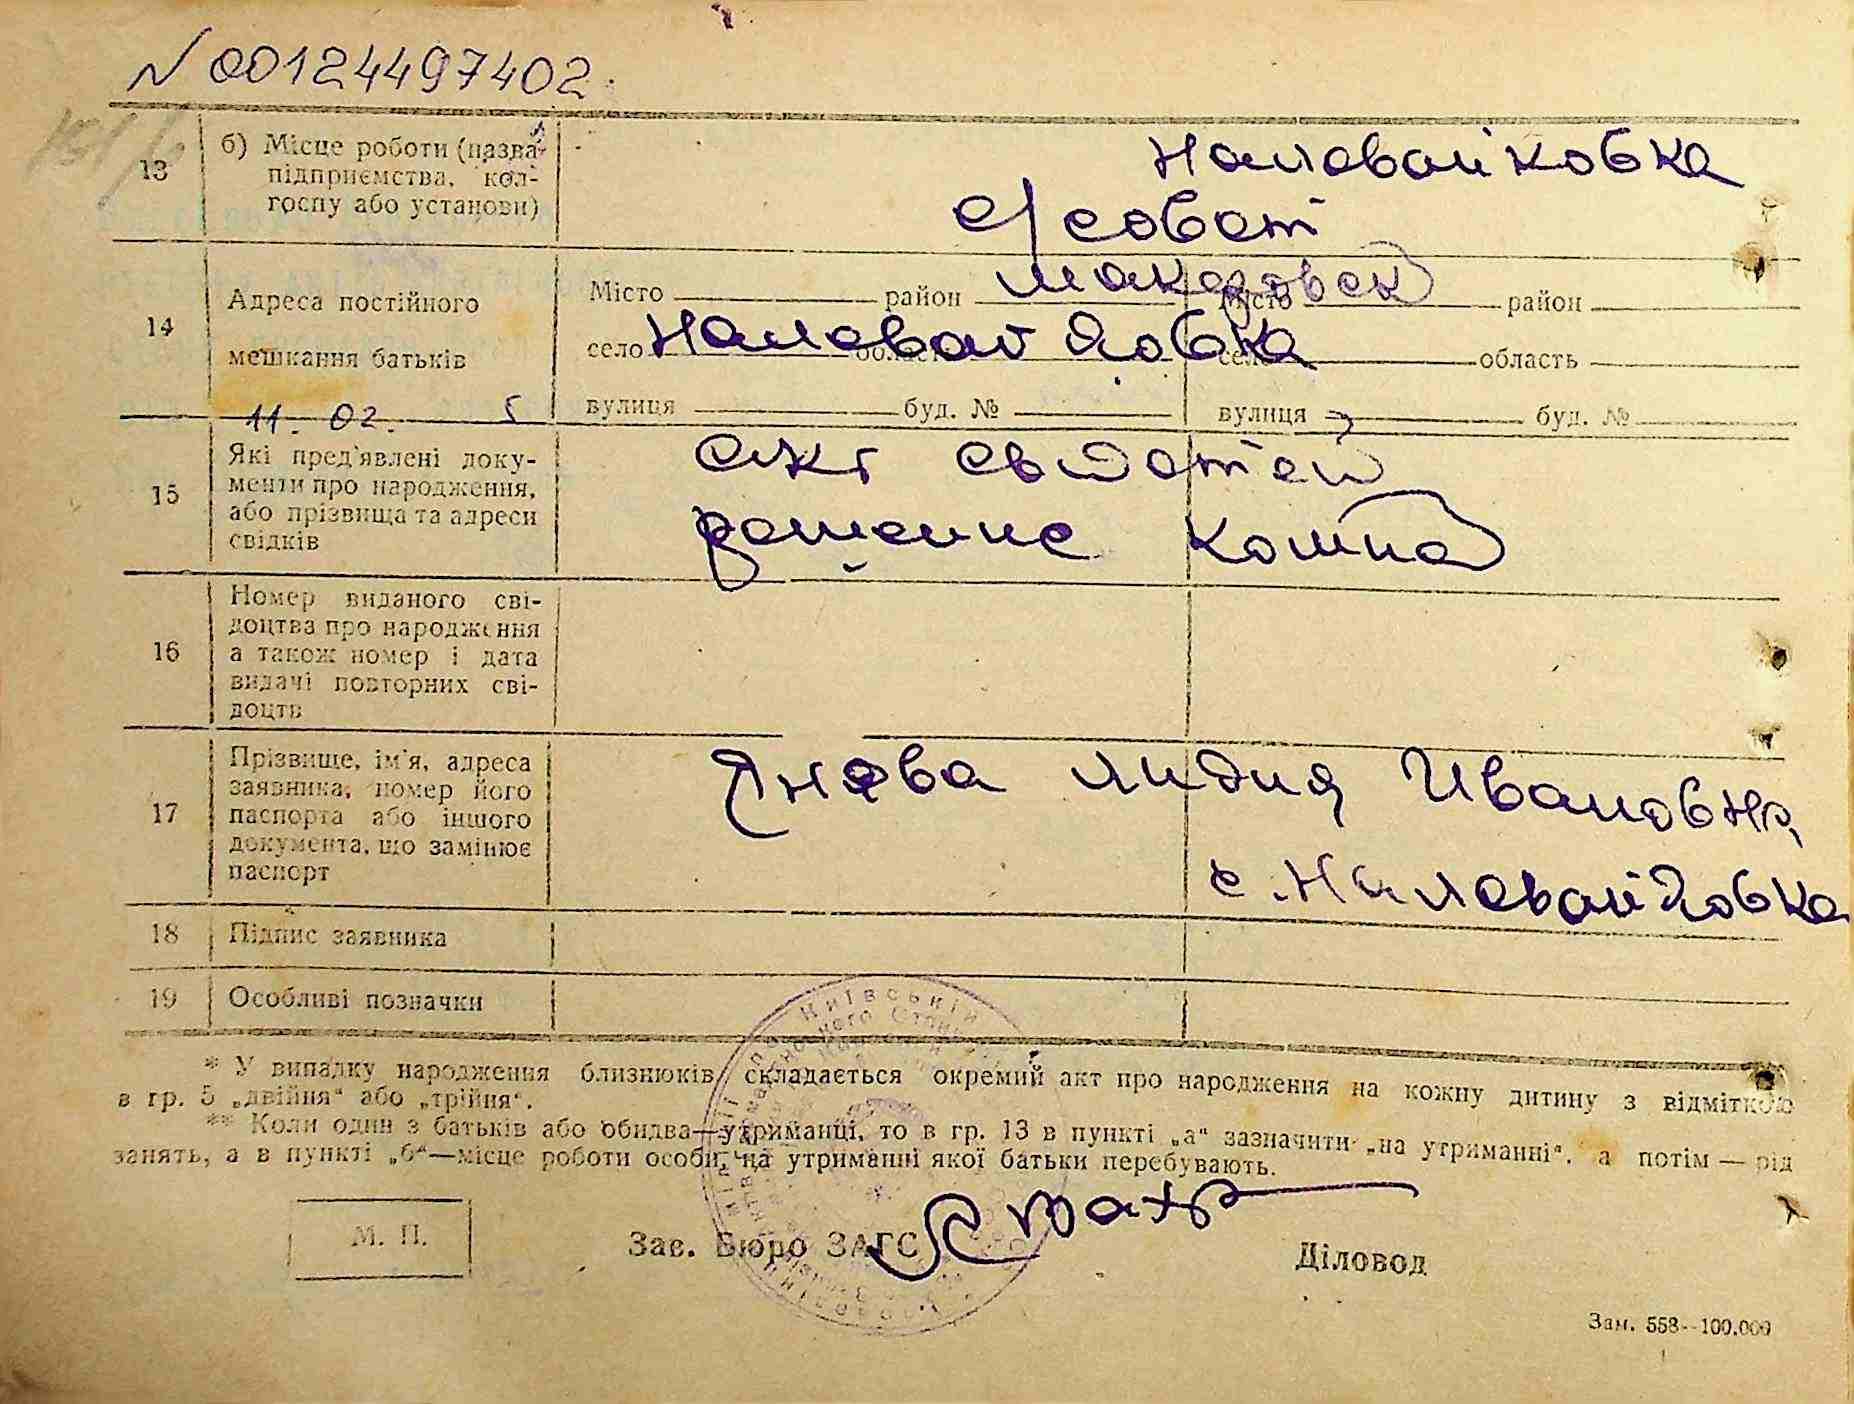 N 00124497402.
13 б) Місце роботи (назва підприємства, кол-
госпу або установи)
Наливайковка
с/совет
14 Адреса постійного
мешкання батьків
Місто район Макаровск Місто район
село Наливайковка область село область
вулиця буд. № вулиця буд. №
11. 02.
15 Які пред'явлені доку-
менти про народження,
або прізвища та адреси
свідків
акт
решение
16 Номер виданого сві-
доцтва про народження
а також номер і дата
видачі повторних сві-
доцтв
17 Прізвище, ім'я, адреса
заявника, номер його
паспорта або іншого
документа, що замінює
паспорт
Лидия Ивановна,
с. Наливайковка
18 Підпис заявника
19 Особливі позначки
* У випадку народження близнюків складається окремий акт про народження на кожну дитину з відміткою
в гр. 5 „двійня“ або „трійня“.
** Коли один з батьків або обидва—утриманці, то в гр. 13 в пункті „а“ зазначити „на утриманні“, а потім — рід
занять, а в пункті „б“—місце роботи особи, на утриманні якої батьки перебувають.
М. П.
Зав. Бюро ЗАГС
Діловод
Зам. 558--100.000